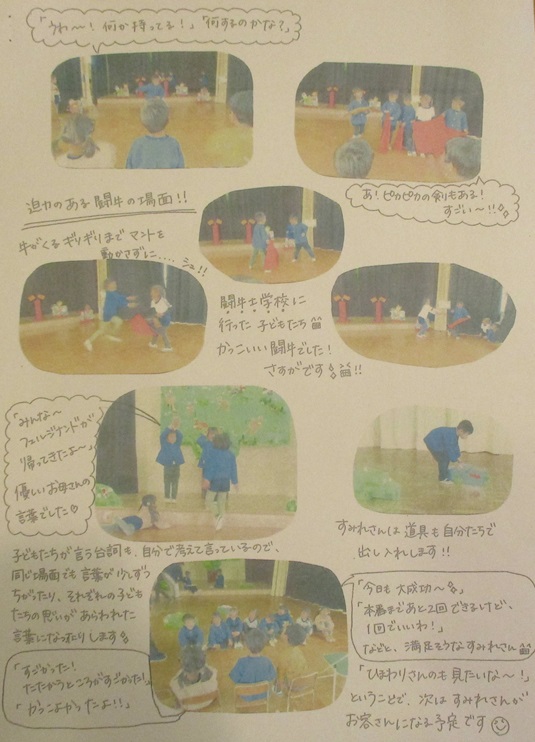 「うわ〜！何か持ってる！」「何するのかな？」
あ！ピカピカの剣もある！
すごい〜！！
迫力のある闘牛の場面！！
牛がくるギリギリまでマントを
動かさずに.... シュ！！
闘牛士学校に
行った子どもたち
かっこいい闘牛でした！
さすがです！！
「みんな〜
フェルジナンドが
帰ってきたよ〜」
優しいお母さんの
言葉でした♡
すみれさんは道具も自分たちで
出し入れします！！
子どもたちが言う台詞も、自分で考えて言っているので、
同じ場面でも言葉が少しずつ
ちがったり、それぞれの子ども
たちの思いがあらわれた
言葉になったりします
「今日も大成功〜」
「本番まであと2回できるけど、
1回でいいわ！」
などと、満足そうなすみれさん
「すごかった！
たたかうところがすごかった！」
「かっこよかったよ！！」
「ひまわりさんのも見たいな〜！」
ということで、次はすみれさんが
お客さんになる予定です